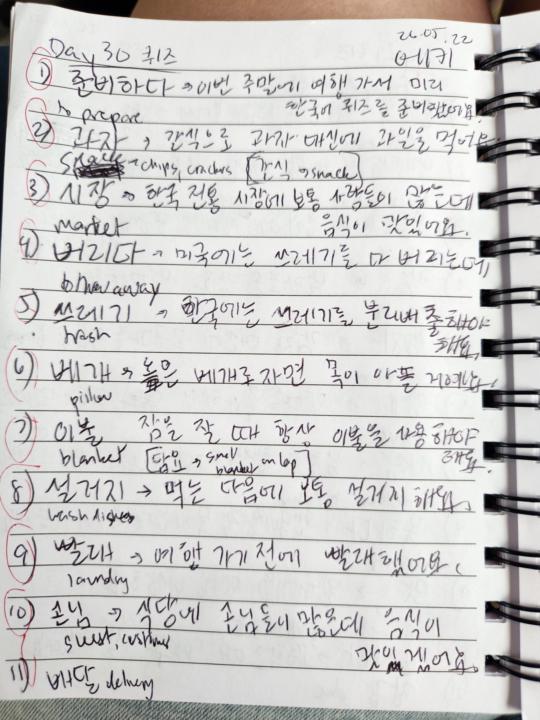 Day 30 퀴즈 26.05.22
베키
1) 준비하다 → 이번 주말에 여행 가서 미리
to prepare 한국어 퀴즈를 준비했어요.
2) 과자 → 간식으로 과자 대신에 과일을 먹어요
snack → chips, crackers [간식 → snack]
3) 시장 → 한국 전통 시장에 보통 사람들이 많는데
market 음식이 맛있어요.
4) 버리다 → 미국에는 쓰레기를 다 버리는데
throw away
5) 쓰레기 → 한국에는 쓰레기를 분리배출해야
trash 해요.
6) 베개 → 높은 베개로 자면 목이 아플 거예요.
pillow
7) 이불 잠을 잘 때 항상 이불을 사용해야
blanket [담요 → small blanket on lap] 해요.
8) 설거지 → 먹는 다음에 보통 설거지 해요.
wash dishes
9) 빨래 → 여행 가기 전에 빨래했어요.
laundry
10) 손님 → 식당에 손님들이 많은데 음식이
guest, customer
11) 배달 delivery